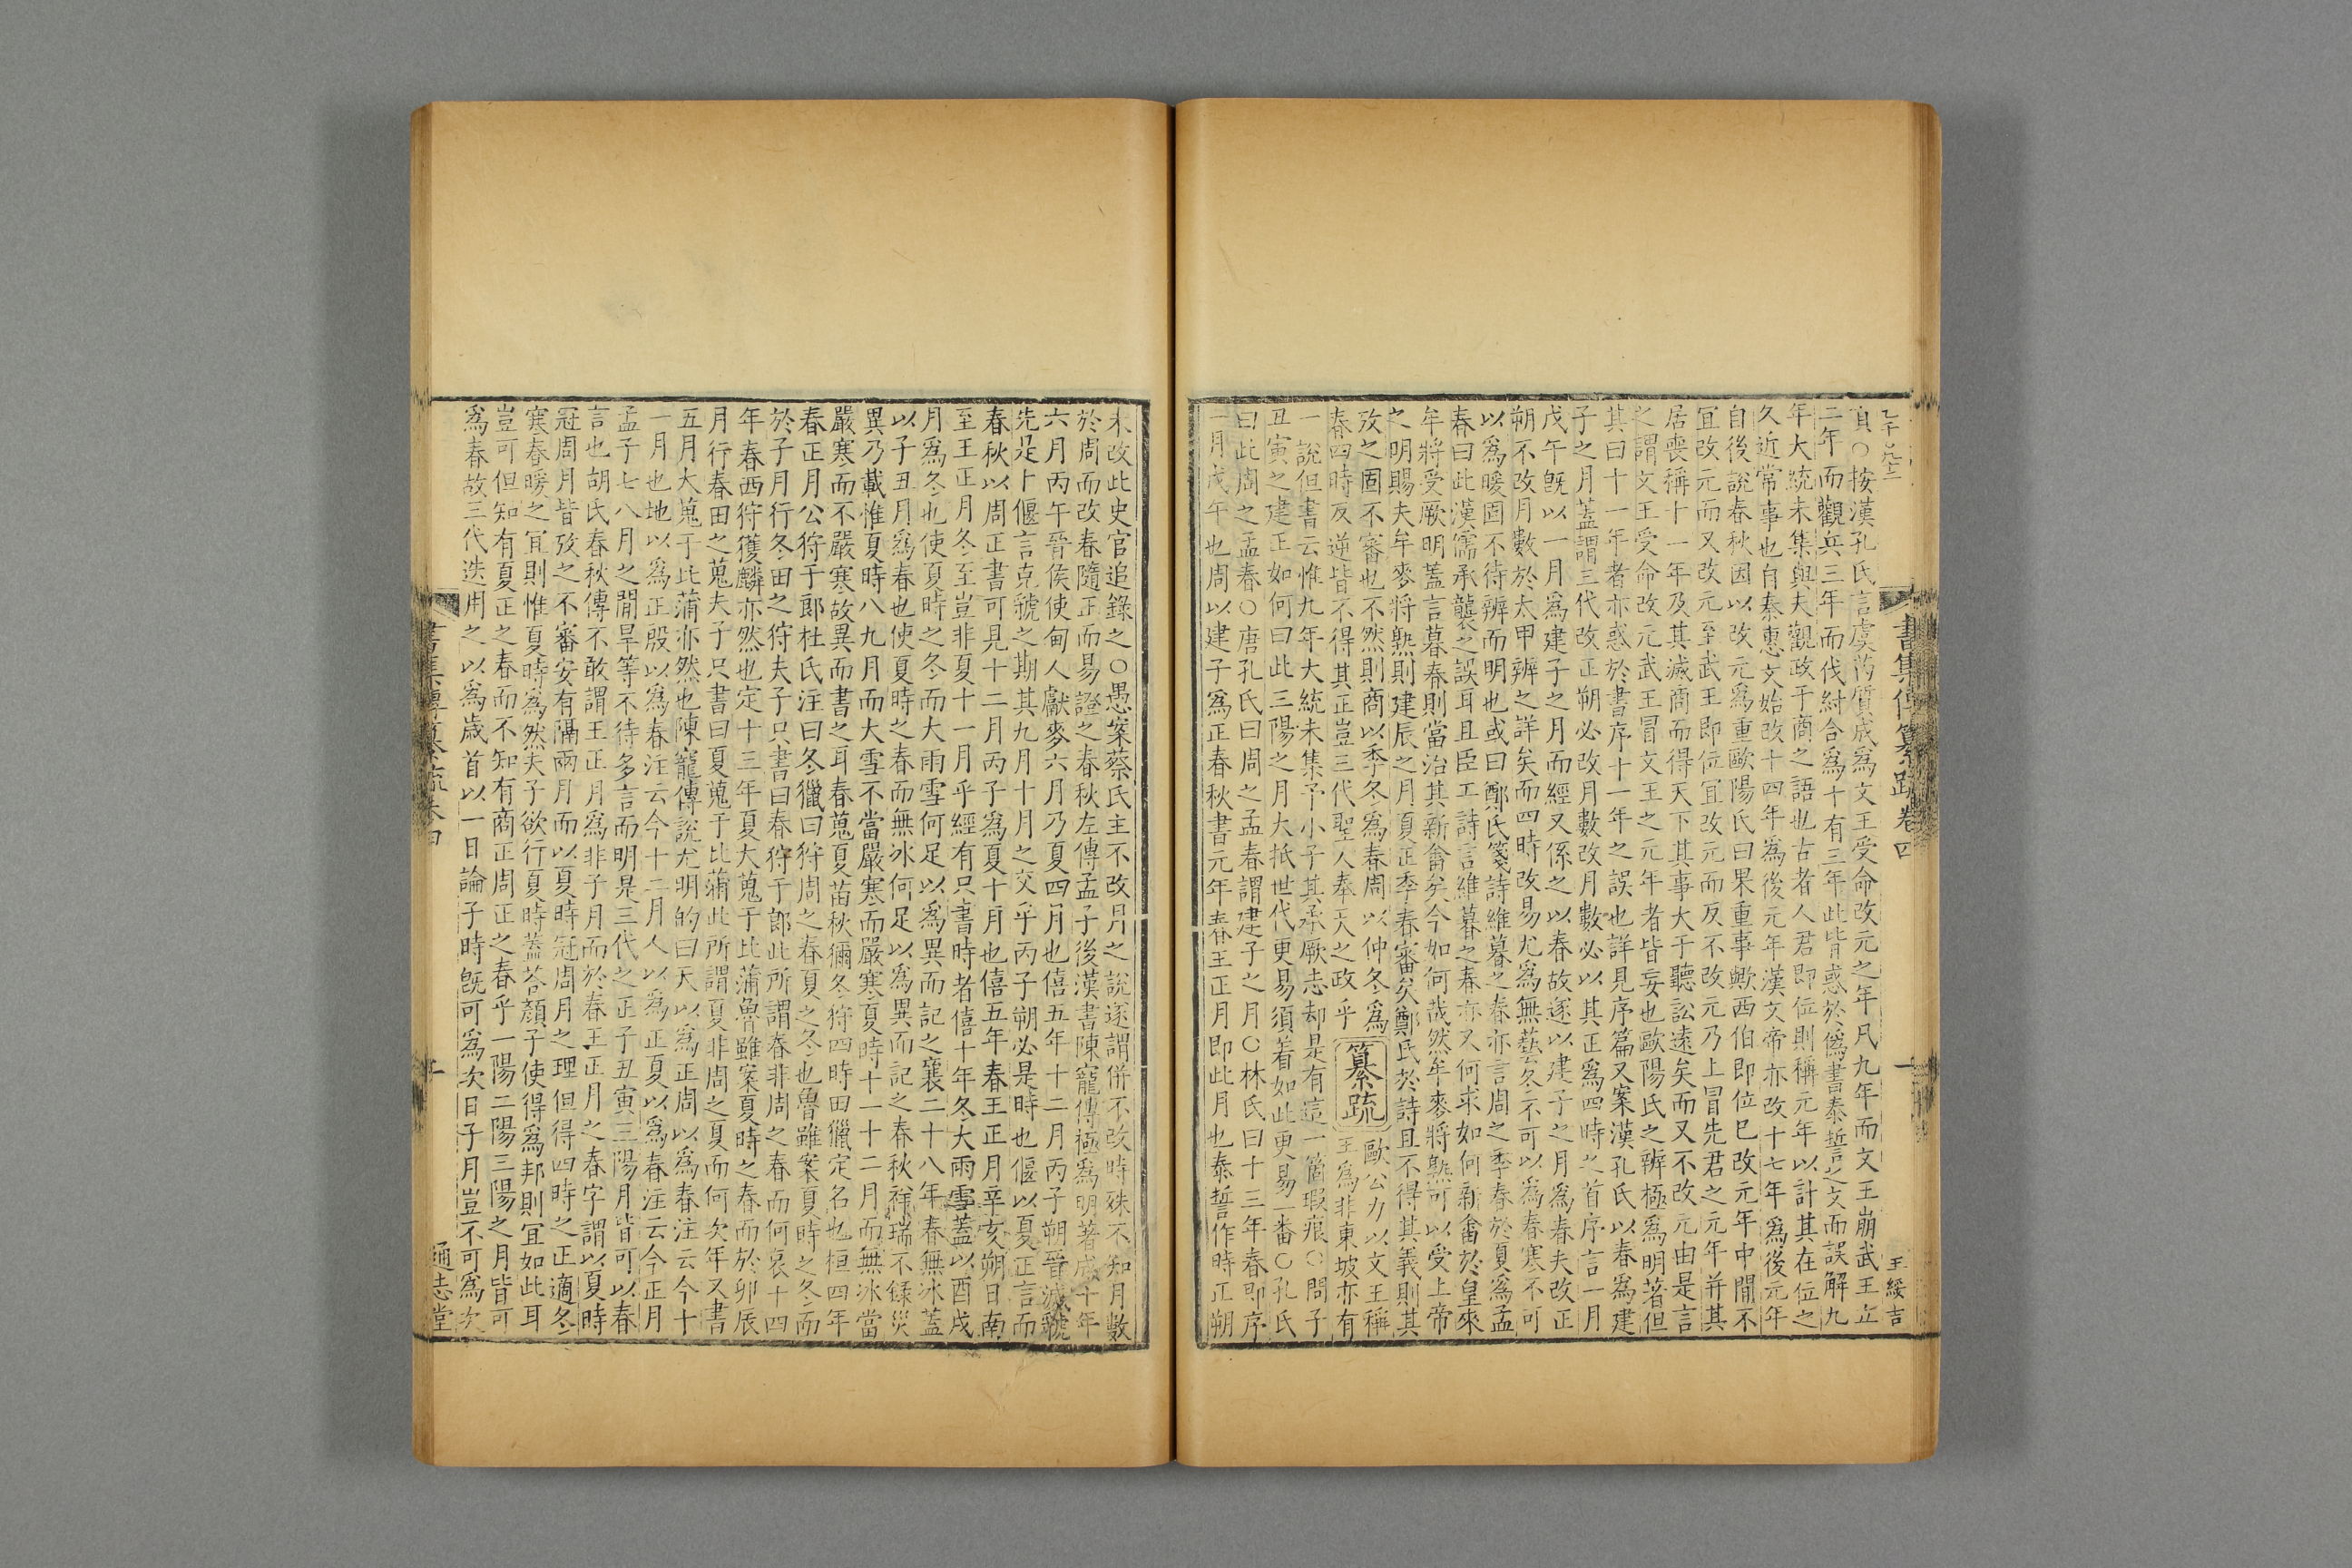 書集傳纂疏 卷四 一 王綏吉
真○按漢孔氏言虞芮質成爲文王受命改元之年凡九年而文王崩武王立
二年而觀兵三年而伐紂合爲十有三年此皆惑於僞書泰誓之文而誤解九
年大統未集與夫觀政于商之語也古者人君即位則稱元年以計其在位之
久近常事也自秦惠文始改十四年爲後元年漢文帝亦改十七年爲後元年
自後說春秋因以改元爲重歐陽氏曰果重事歟西伯即位巳改元年中間不
宜改元而又改元至武王即位宜改元而反不改元乃上冒先君之元年并其
居喪稱十一年及其滅商而得天下其事大于聽訟遠矣而又不改元由是言
之謂文王受命改元武王冒文王之元年者皆妄也歐陽氏之辨極爲明著但
其曰十一年者亦惑於書序十一年之誤也詳見序篇又案漢孔氏以春爲建
子之月蓋謂三代改正朔必改月數改月數必以其正爲四時之首序言一月
戊午旣以一月爲建子之月而經又係之以春故遂以建子之月爲春夫改正
朔不改月數於太甲辨之詳矣而四時改易尤爲無藝冬不可以爲春寒不可
以爲暖固不待辨而明也或曰鄭氏箋詩維暮之春亦言周之季春於夏爲孟
春曰此漢儒承襲之誤耳且臣工詩言維暮之春亦又何求如何新畬於皇來
牟將受厥明蓋言暮春則當治其新畬矣今如何哉然牟麥將熟可以受上帝
之明賜夫牟麥將熟則建辰之月夏正季春審矣鄭氏於詩且不得其義則其
攷之固不審也不然則商以季冬爲春周以仲冬爲
春四時反逆皆不得其正豈三代聖人奉天之政乎 纂疏 歐公力以文王稱王爲非東坡亦有
一說但書云惟九年大統未集予小子其承厥志却是有這一箇瑕痕○問子
丑寅之建正如何曰此三陽之月大抵世代更易須着如此更易一番○孔氏
曰此周之孟春○唐孔氏曰周之孟春謂建子之月○林氏曰十三年春即序
一月戊午也周以建子爲正春秋書元年春王正月即此月也泰誓作時正朔
未改此史官追錄之○愚案蔡氏主不改月之說遂謂併不改時殊不知月數
於周而改春隨正而易證之春秋左傳孟子後漢書陳寵傳極爲明著成十年
六月丙午晉侯使甸人獻麥六月乃夏四月也僖五年十二月丙子朔晉滅虢
先是卜偃言克虢之期其九月十月之交乎丙子朔必是時也偃以夏正言而
春秋以周正書可見十二月丙子爲夏十月也僖五年春王正月辛亥朔日南
至王正月冬至豈非夏十一月乎經有只書時者僖十年冬大雨雪蓋以酉戌
月爲冬也使夏時之冬而大雨雪何足以爲異而記之襄二十八年春無冰蓋
以子丑月爲春也使夏時之春而無冰何足以爲異而記之春秋祥瑞不錄災
異乃載惟夏時八九月而大雪不當嚴寒而嚴寒夏時十一十二月而無冰當
嚴寒而不嚴寒故異而書之耳春蒐夏苗秋獮冬狩四時田獵定名也桓四年
春正月公狩于郎杜氏注曰冬獵曰狩周之春夏之冬也魯雖案夏時之冬而
於子月行冬田之狩夫子只書曰春狩于郎此所謂春非周之春而何哀十四
年春西狩獲麟亦然也定十三年夏大蒐于比蒲魯雖案夏時之春而於卯辰
月行春田之蒐夫子只書曰夏蒐于比蒲此所謂夏非周之夏而何次年又書
五月大蒐于比蒲亦然也陳寵傳說尤明的曰天以爲正周以爲春注云今十
一月也地以爲正殷以爲春注云今十二月人以爲正夏以爲春注云今正月
孟子七八月之間旱等不待多言而明是三代之正子丑寅三陽月皆可以春
言也胡氏春秋傳不敢謂王正月爲非子月而於春王正月之春字謂以夏時
冠周月皆攷之不審安有隔兩月而以夏時冠周月之理但得四時之正適冬
寒春暖之宜則惟夏時爲然夫子欲行夏時蓋荅顔子使得爲邦則宜如此耳
豈可但知有夏正之春而不知有商正周正之春乎一陽二陽三陽之月皆可
爲春故三代迭用之以爲歲首以一日論子時旣可爲次日子月豈不可爲次
書集傳纂疏卷四 通志堂